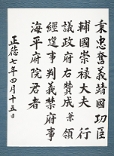 秉忠奮義靖國功臣
輔國崇祿大夫行
議政府右贊成兼領
經筵事判義禁府事
海平府院君者
正德七年四月十五日